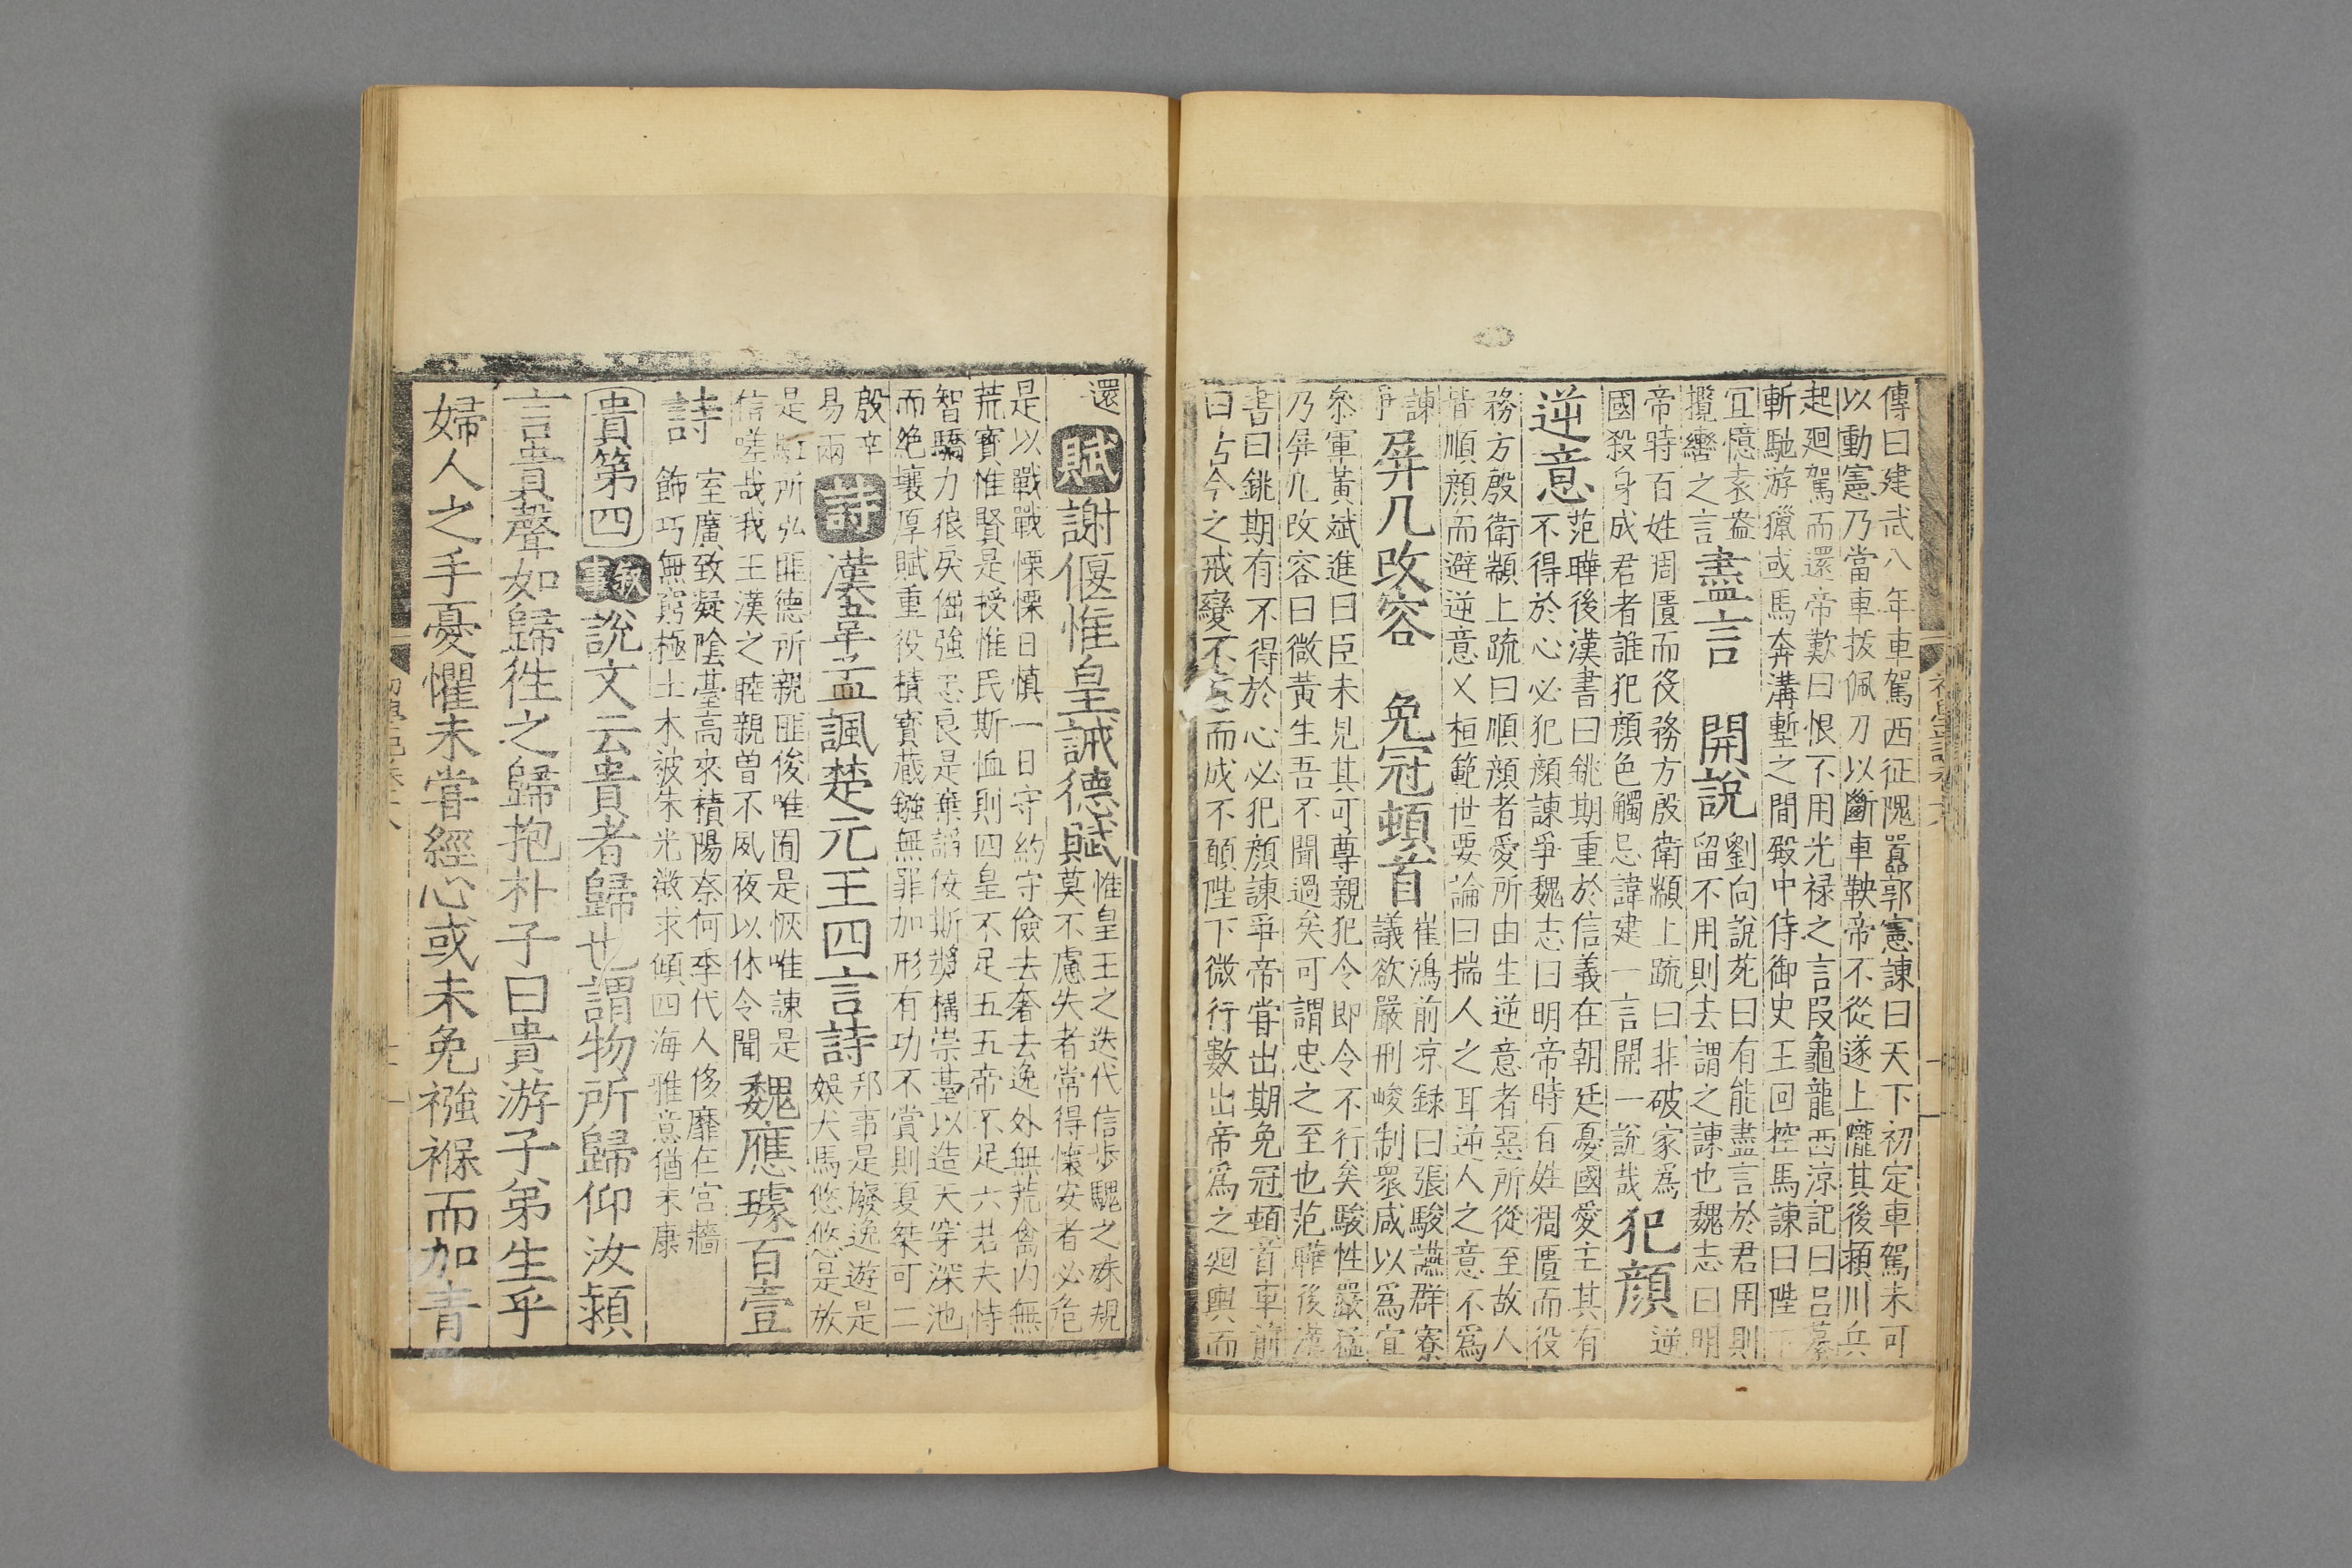 傳曰建武八年車駕西征隗囂郭憲諫曰天下初定車駕未可
以動憲乃當車拔佩刀以斷車鞅帝不從遂上隴其後潁川兵
起廻駕而還帝歎曰恨不用光禄之言段龜龍西涼記曰呂纂
斬馳游獵或馬奔溝塹之間殿中侍御史王回控馬諫曰陛下
宜憶袁盎
攬轡之言
盡言 開說
劉向說苑曰有能盡言於君用則
留不用則去謂之諫也魏志曰明
帝時百姓凋匱而役務方殷衛顗上疏曰非破家爲
國殺身成君者誰犯顔色觸忌諱建一言開一說哉
犯顔
逆
逆意
范曄後漢書曰銚期重於信義在朝廷憂國愛主其有
不得於心必犯顔諫爭魏志曰明帝時百姓凋匱而役
務方殷衛顗上疏曰順顔者愛所由生逆意者惡所從至故人
皆順顔而避逆意又桓範世要論曰揣人之耳逆人之意不爲
諫
爭
屏几改容 免冠頓首
崔鴻前凉錄曰張駿讌群寮
議欲嚴刑峻制衆咸以爲宜
叅軍黃斌進曰臣未見其可尊親犯令即令不行矣駿性嚴猛
乃屏几改容曰微黃生吾不聞過矣可謂忠之至也范曄後漢
書曰銚期有不得於心必犯顔諫爭帝嘗出期免冠頓首車前
曰古今之戒變不意而成不願陛下微行數出帝爲之廻輿而
還
賦
謝偃惟皇誡德賦
惟皇王之迭代信步驟之殊規
莫不慮失者常得懷安者必危
是以戰戰慄慄日慎一日守約守儉去奢去逸外無荒禽内無
荒寶惟賢是授惟民斯恤則四皇不足五五帝不足六若夫恃
智驕力狼戾倔強忠良是棄諂佞斯奬構崇臺以造天穿深池
而絶壤厚賦重役積寶藏鏹無罪加形有功不賞則夏桀可二
殷辛
易兩
詩
漢韋孟諷楚元王四言詩
邦事是廢逸遊是
娱犬馬悠悠是放
是駈所弘匪德所親匪俊唯囿是恢唯諛是
信嗟哉我王漢之睦親曾不夙夜以休令聞
魏應璩百壹
詩
室廣致凝陰臺高來積陽奈何季代人侈靡在宮牆
飾巧無窮極土木被朱光徵求傾四海雅意猶未康
貴第四
敘事
說文云貴者歸也謂物所歸仰汝潁
言貴聲如歸徃之歸抱朴子曰貴游子弟生乎
婦人之手憂懼未嘗經心或未免襁褓而加青